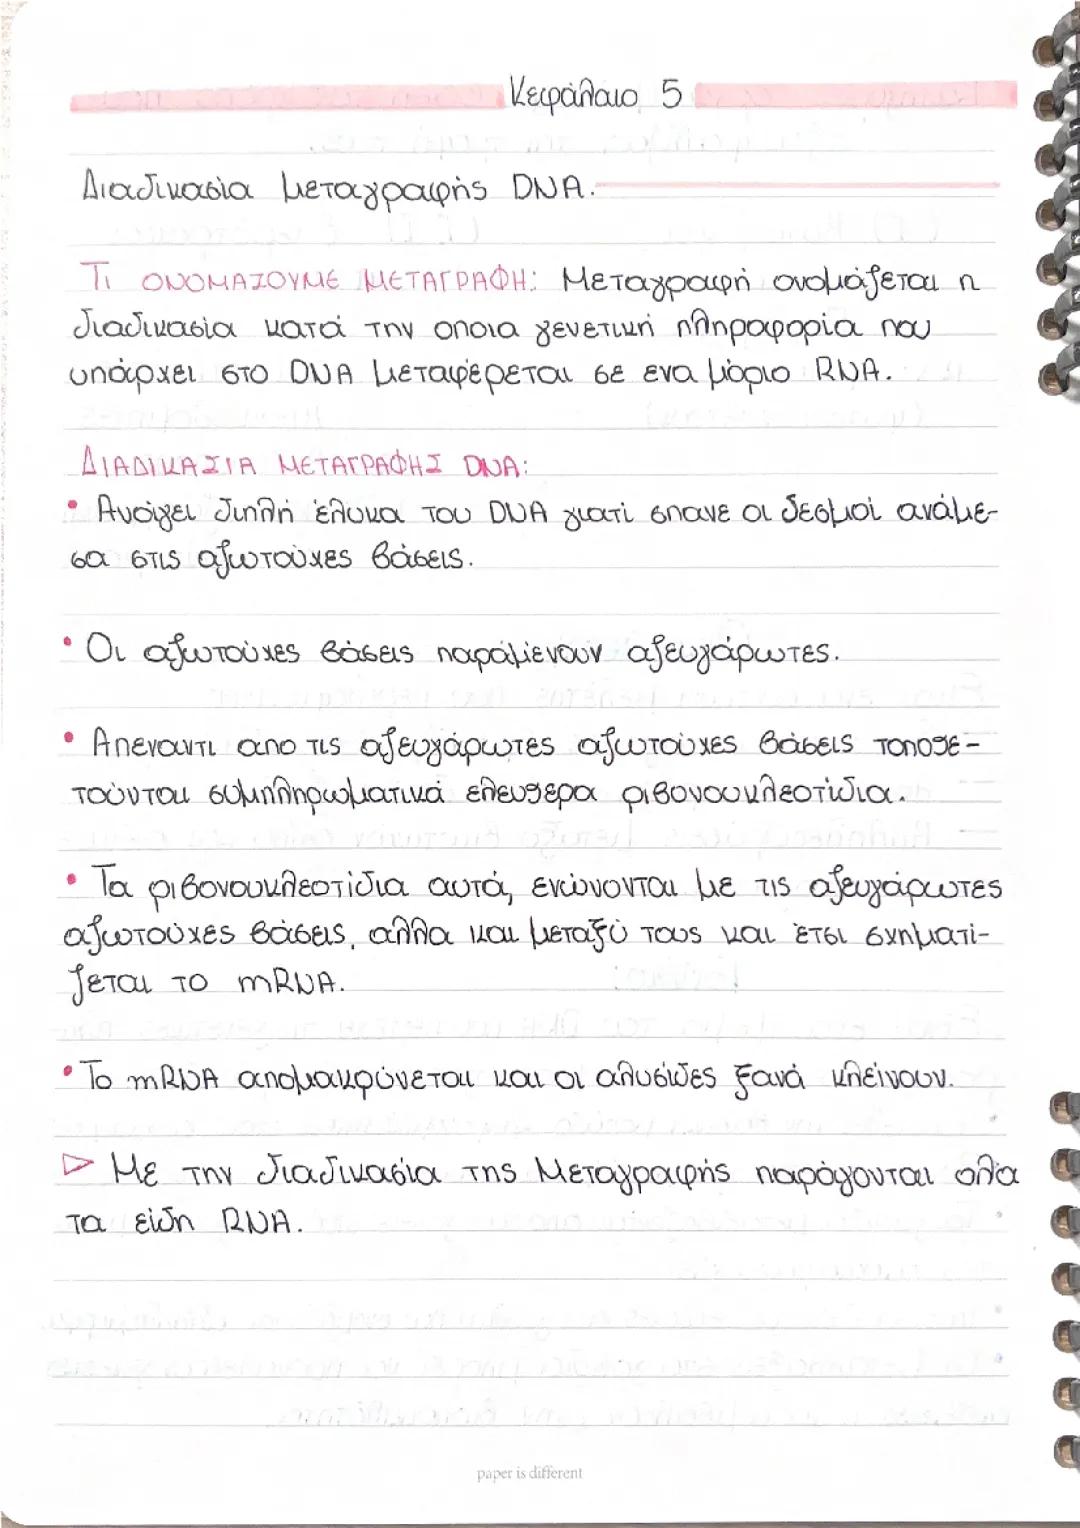 Κεφάλαιο 5
Διαδικασία μεταγραφής DNA.
ΤΙ ΟΝΟΜΑΖΟΥΜΕ ΜΕΤΑΓΡΑΦΗ: Μεταγραφή ονομάζεται η
διαδικασία κατά την οποια γενετική πληροφορία που
υπάρχει στο DNA μεταφέρεται σε ενα μόριο RNA.
ΔΙΑΔΙΚΑΣΙΑ ΜΕΤΑΓΡΑΦΗΣ DNA:
• Ανοίγει διπλή έλικα του DNA γιατί σπανε οι δεσμοί ανάμε-
σα στις αζωτούχες βάσεις.
• Οι αζωτούχες βάσεις παράμενουν αζευγάρωτες.
• Απεναντι απο τις αζευγάρωτες αζωτούχες βάσεις τοποθε-
τούνται συμπληρωματικά ελευθερα ριβονουκλεοτίδια.
• Τα ριβονουκλεοτίδια αυτά, ενώνονται με τις αζευγάρωτες
αζωτούχες βάσεις, αλλα και μεταξύ τους και έτσι σχηματί-
ζεται το mRNA.
• Το mRNA απομακρύνεται και οι αλυσίδες ξανά κλείνουν.
▷ Με την διαδικασία της Μεταγραφής παράγονται ολα
τα είδη RNA.
paper is different